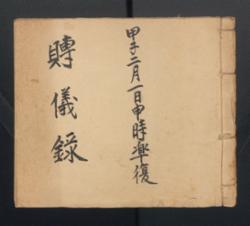 甲子二月一日申時皐復
賻儀錄